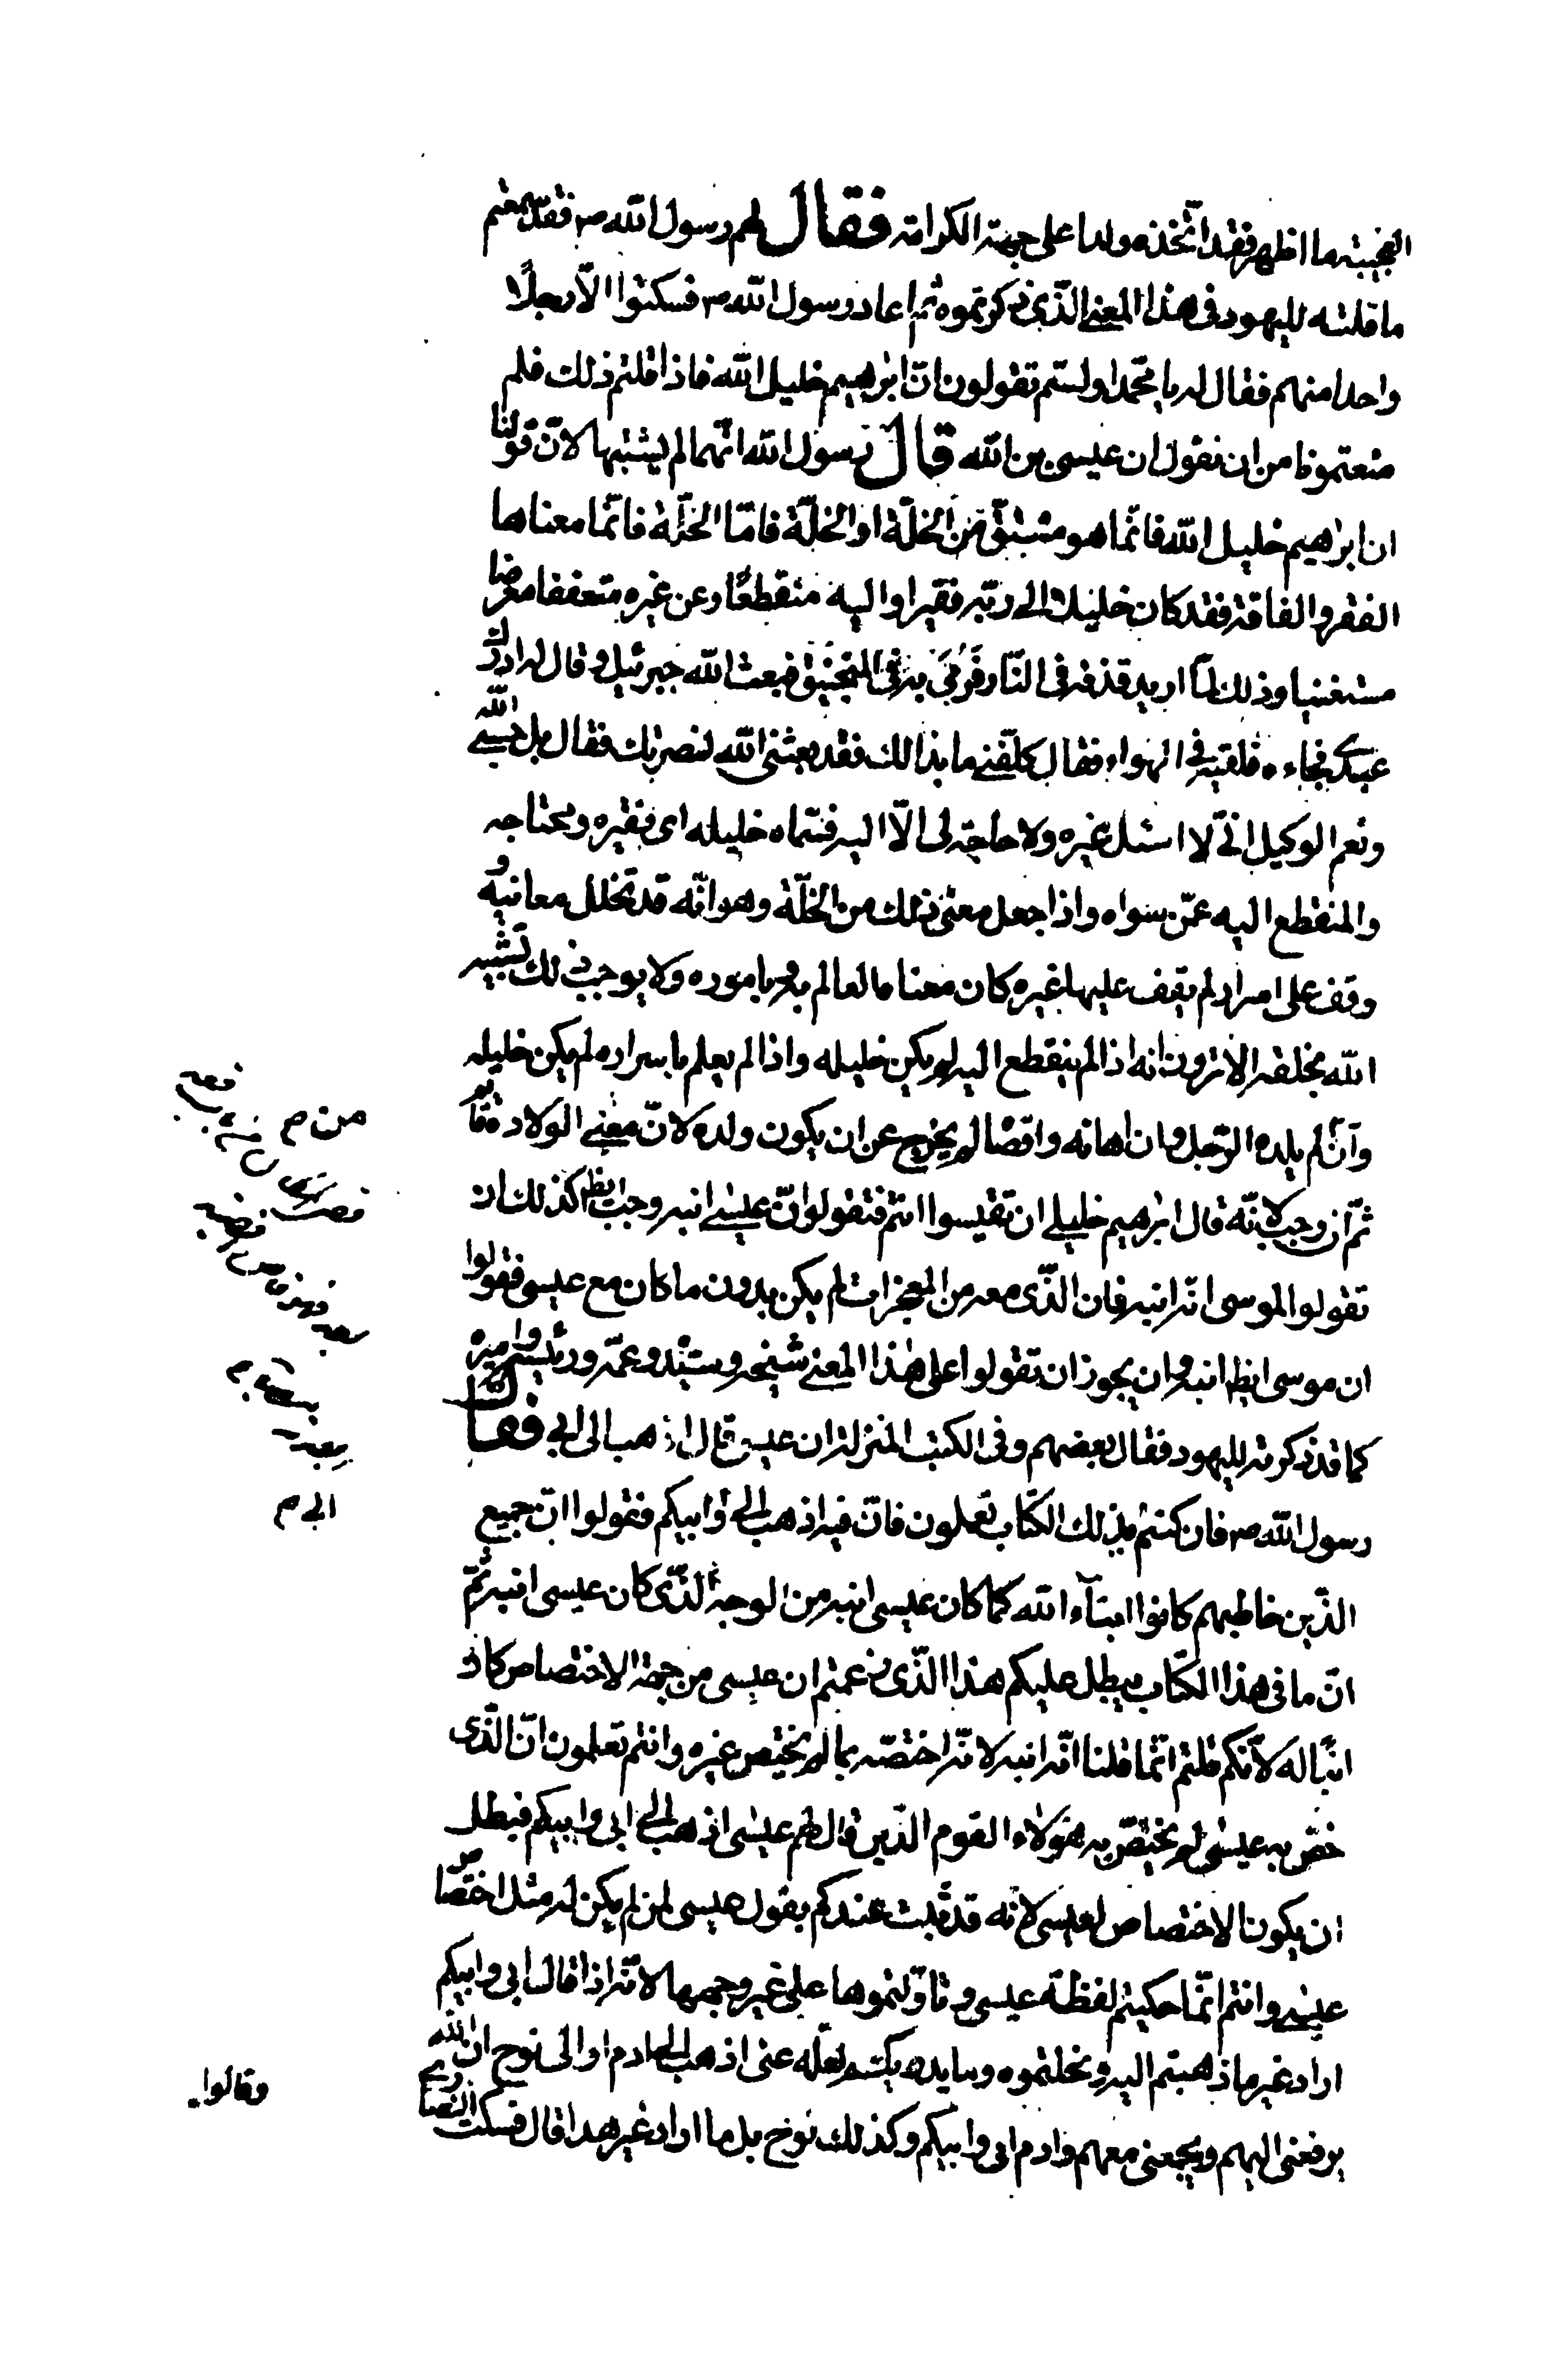 العجيبة ما اظهر فقد اتخذه ولدا على جهة الكرامة فقال لهم رسول الله ص فقد سمعتم
ما قلته لليهود فى هذا المعنى الذى ذكرتموه ثم اعاد رسول الله ص فسكتوا الا رجلا
واحدا منهم فقال له يا محمد اولستم تقولون ان ابرهيم خليل الله فاذا قلتم ذلك فلم
منعتمونا من ان نقول ان عيسى بن الله قال رسول الله انهما لم يشتبها لان قولنا
ان ابرهيم خليل الله فانما هو مشتق من الخلة او الخلة فاما الخلة فانما معناها
الفقر والفاقة فقد كان خليلا الى ربه فقيرا واليه منقطعا وعن غيره متعففا معرضا
مستغنيا وذلك لما اريد قذفه فى النار فرمى به فى المنجنيق فبعث الله جبرئيل وقال له ادرك
عبدى فجاءه فلقيه فى الهواء فقال كلفنى ما بدا لك فقد بعثنى الله لنصرتك فقال بل حسبى الله
ونعم الوكيل انى لا اسئل غيره ولا حاجة لى الا اليه فسماه خليله اى فقيره ومحتاجه
والمنقطع اليه عمن سواه واذا جعل معنى ذلك من الخلة وهو انه قد تخلل معانيه و
وقف على اسرار لم يقف عليها غيره كان معناه العالم به وبا موره ولا يوجب ذلك تشبيه
الله بخلقه الا ترون انه اذا لم ينقطع اليه لم يكن خليله واذا لم يعلم باسراره لم يكن خليله
وان لم يلده الرجل وان اهانه واقصاه لم يخرج عن ان يكون ولده لان معنى الولادة قائم
ثم ان وجب لانه قال ابرهيم خليلى ان تقيسوا انتم فتقولوا ان عيسى ابنه وجب ايظ كذلك ان
تقولوا لموسى انه ابنه فان الذى معه من المعجزات لم يكن بدون ما كان مع عيسى فقولوا
ان موسى ايظ ابنه وان يجوز ان تقولوا على هذا المعنى شيخه وسيده وعمه ورئيسه واميره
كما قد ذكرته لليهود فقال بعضهم وفى الكتب المنزلة ان عيسى قال اذهب الى ابى فقال
رسول الله ص فان كنتم بذلك الكتاب تعملون فان فيه اذهب الى ابى وابيكم فقولوا ان جميع
الذين خاطبهم كانوا ابناء الله كما كان عيسى ابنه من الوجه الذى كان عيسى ابنه ثم
ان ما فى هذا الكتاب يبطل عليكم هذا الذى زعمتم ان عيسى من جهة الاختصاص كان
ابنا له لانكم قلتم انما قلنا انه ابنه لانه اختصه بما لم يختص غيره وانتم تعلمون ان الذى
خص به عيسى لم يختص به هؤلاء القوم الذين قال لهم عيسى اذهب الى ابى وابيكم فبطل
ان يكون الاختصاص لعيسى لانه قد ثبت عندكم بقول عيسى لمن لم يكن له مثل اختصاص
عيسى وانتم انما حكيتم لفظة عيسى وتاولتموها على غير وجهها لانه اذا قال ابى وابيكم
اراد غير ما ذهبتم اليه ونحلتموه وما يدريكم لعله عنى اذهب الى ادم او الى نوح ان الله
يرفعنى اليهم ويجمعنى معهم وادم ابى وابيكم وكذلك نوح بل ما اراد غير هذا قال فسكت النصارى
من م
ابى م
وقالوا